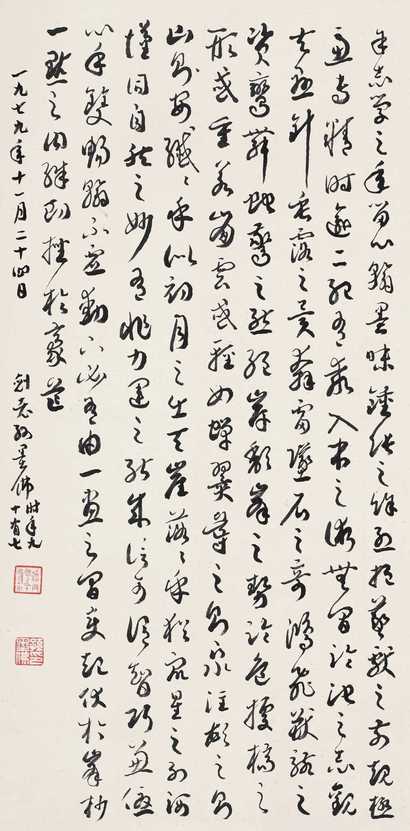 余志學之年留心翰墨味鍾張之餘烈挹羲獻之前規極
慮專精時逾二紀有乖入木之術無間臨池之志觀
夫懸針垂露之異奔雷墜石之奇鴻飛獸駭之
資鸞舞蛇驚之態絕岸頹峯之勢臨危據槁之
形或重若崩雲或輕如蟬翼導之則泉注頓之則
山安纖々乎似初月之出天崖落々乎猶眾星之列河
漢同自然之妙有非力運之能成信可謂智巧兼優
心手雙暢翰不虛動下必有由一畫之間變起伏於峯杪
一點之內殊衄挫於豪芒
一九七九年十一月二十四日 劍老孫墨佛時年九
十有七